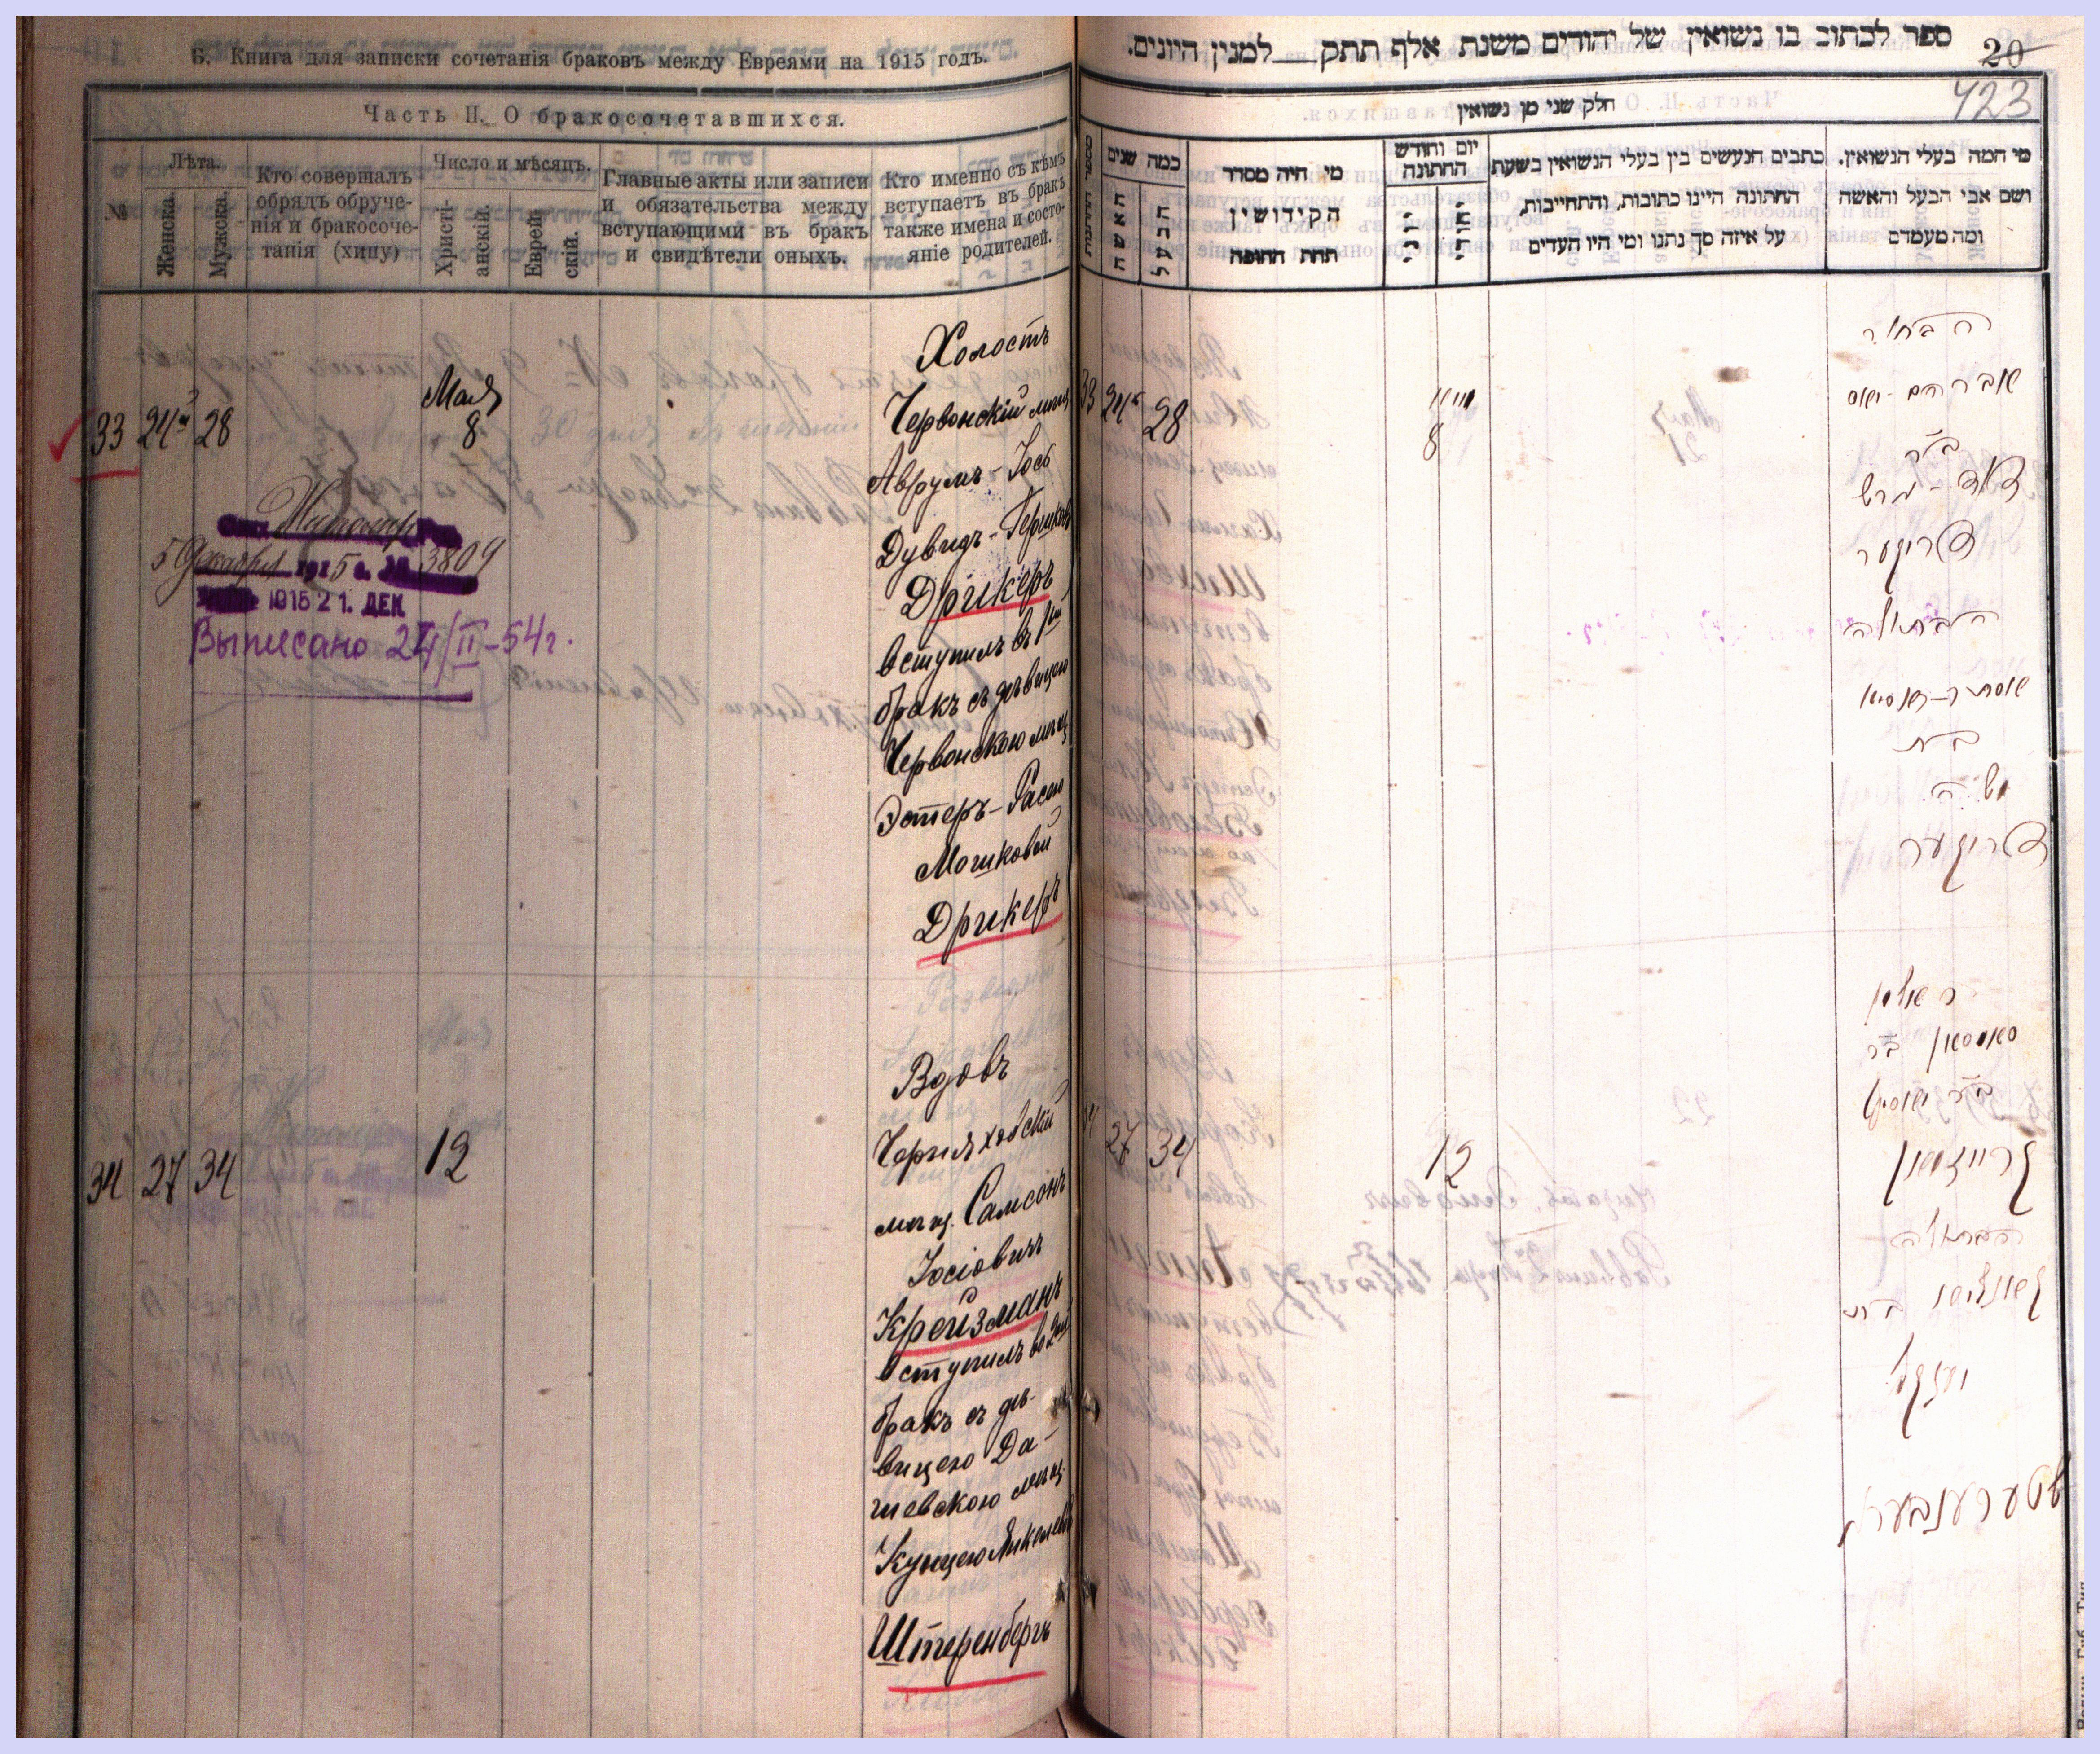 Б. Книга для записки сочетанія браковъ между Евреями на 1915 годъ.
Часть II. О бракосочетавшихся.
№
Лѣта.
Женска.
Мужска.
Кто совершалъ
обрядъ обруче-
нія и бракосоче-
танія (хипу)
Число и мѣсяцъ.
Христі-
анскій.
Еврей-
скій.
Главные акты или записи
и обязательства между
вступающими въ бракъ
и свидѣтели оныхъ.
Кто именно съ кѣмъ
вступаетъ въ бракъ
также имена и состо-
яніе родителей.
33 24 28
Мая
8
Холостъ
Червонскій мѣщ
Аврумъ-Іось
Дувидъ-Гершковъ
Дрикеръ
вступилъ въ 1й
бракъ съ дѣвицею
Червонскою мѣщ
Эстеръ-Расею
Мошковой
Дрикеръ
Житомир
5 Декабря 1915 г. № 3809
1915 21. ДЕК
Выписано 24/II-54г.
34 27 34
12
Вдовъ
Черняховскій
мѣщ. Самсонъ
Іосіовичъ
Крейзманъ
вступилъ во 2й
бракъ съ дѣ-
вицею Да-
шевскою мѣщ.
Кунцею Янкелев
Штеренбергъ
ספר לכתוב בו נשואין של יהודים משנת אלף תתק למנין היונים.
20
423
חלק שני מן נשואין
כמה שנים
האשה
הבעל
מי היה מסדר
הקידושין
תחת החופה
יום וחודש
החתונה
כתבים הנעשים בין בעלי הנשואין בשעת
החתונה היינו כתובות, והתחייבות,
על איזה סך נתנו ומי היו העדים
מי המה בעלי הנשואין.
ושם אבי הבעל והאשה
ומה מעמדם
33 24 28
מאי
8
הבחור
אברהם-יאס
ב״ר
דוד-הרש
דריקער
הבתולה
אסתר-ראסיא
ב״ת
משה
דריקער
34 27 34
12
האלמן
סאמסאן ב״ר
קרייזמאן
הבתולה
קונציא ב״ת
יענקל
שטערנבערג